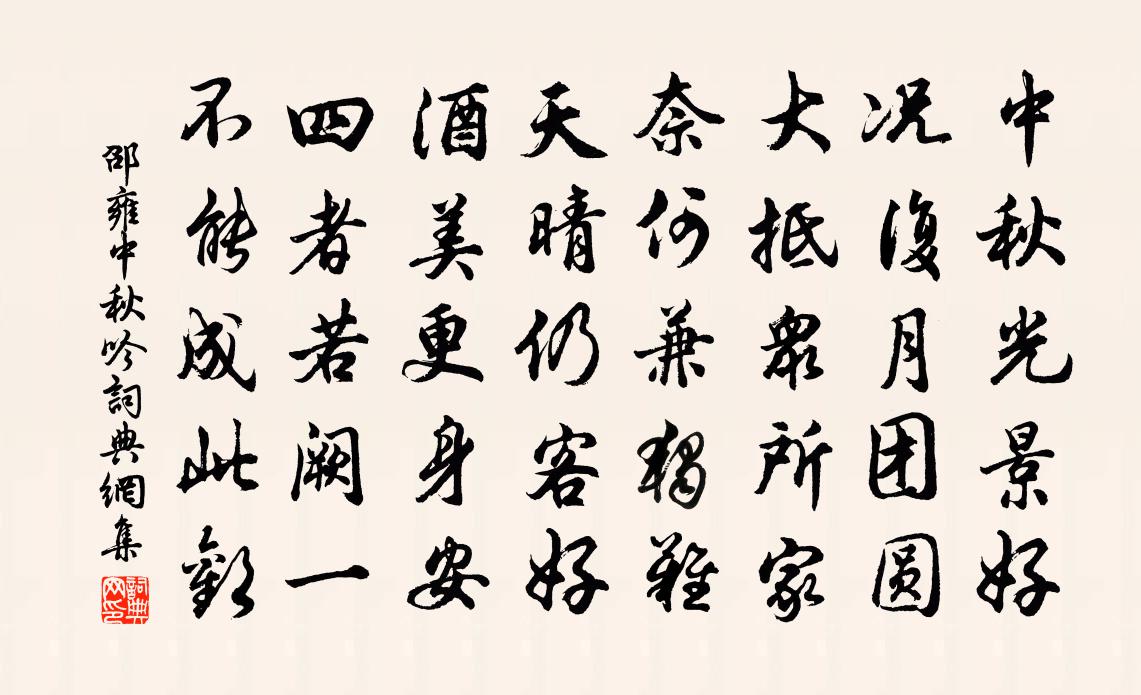 中秋光景好
况復月团圆
大抵衆所家
奈何兼獨難
天晴仍客好
酒美更身安
四者若闕一
不能成此歡
邵雍中秋吟詞典網集
詞典网印